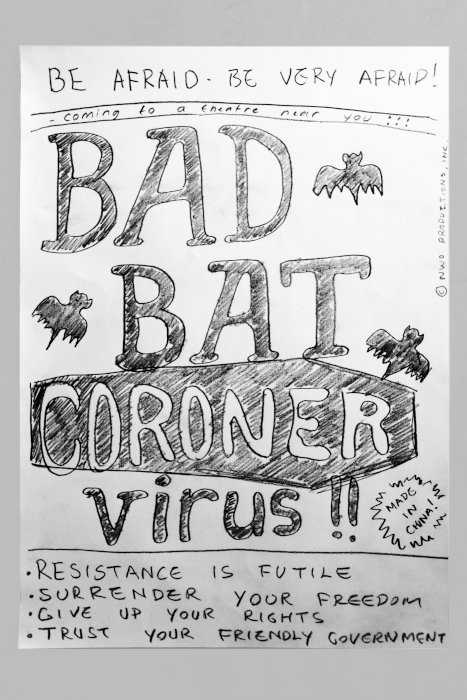 BE AFRAID - BE VERY AFRAID!
- coming to a theatre near you !!!
BAD
BAT
CORONER
virus !!
© NWO PRODUCTIONS, INC.
MADE
IN
CHINA!
• RESISTANCE IS FUTILE
• SURRENDER YOUR FREEDOM
• GIVE UP YOUR RIGHTS
• TRUST YOUR FRIENDLY GOVERNMENT